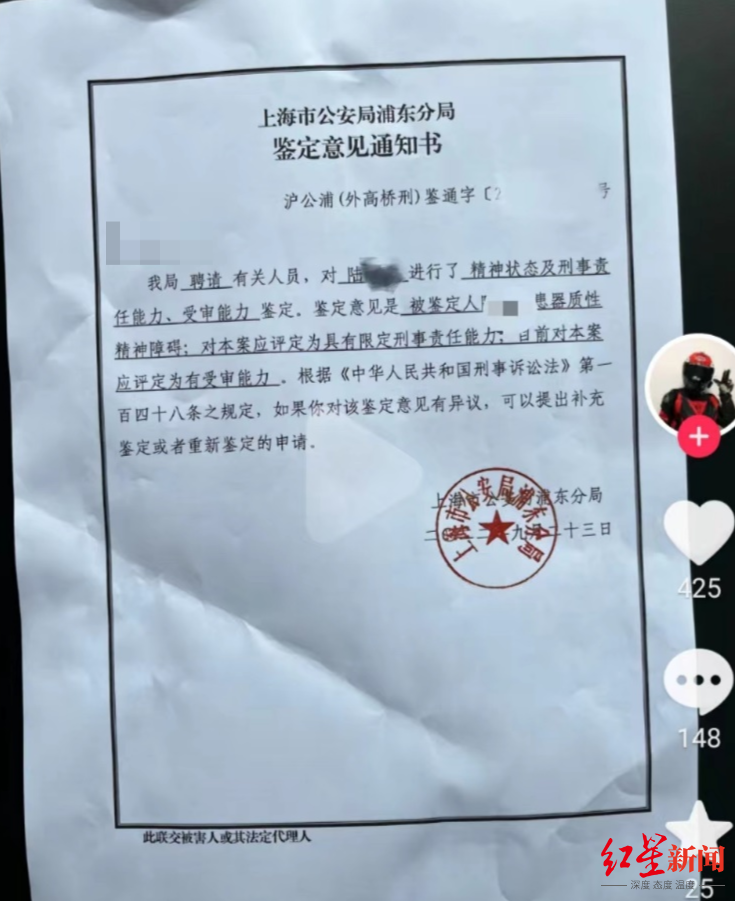 上海市公安局浦东分局
鉴定意见通知书
沪公浦(外高桥刑)鉴通字〔2 号
我局 聘请 有关人员，对 陆 进行了 精神状态及刑事责
任能力、受审能力 鉴定。鉴定意见是 被鉴定人 患器质性
精神障碍；对本案应评定为具有限定刑事责任能力；目前对本案
应评定为有受审能力 。根据《中华人民共和国刑事诉讼法》第一
百四十八条之规定，如果你对该鉴定意见有异议，可以提出补充
鉴定或者重新鉴定的申请。
上海市公安局浦东分局
上海市公安局浦东分局
二 二 九月二十三日
此联交被害人或其法定代理人
425
148
25
红星新闻
深度 态度 温度